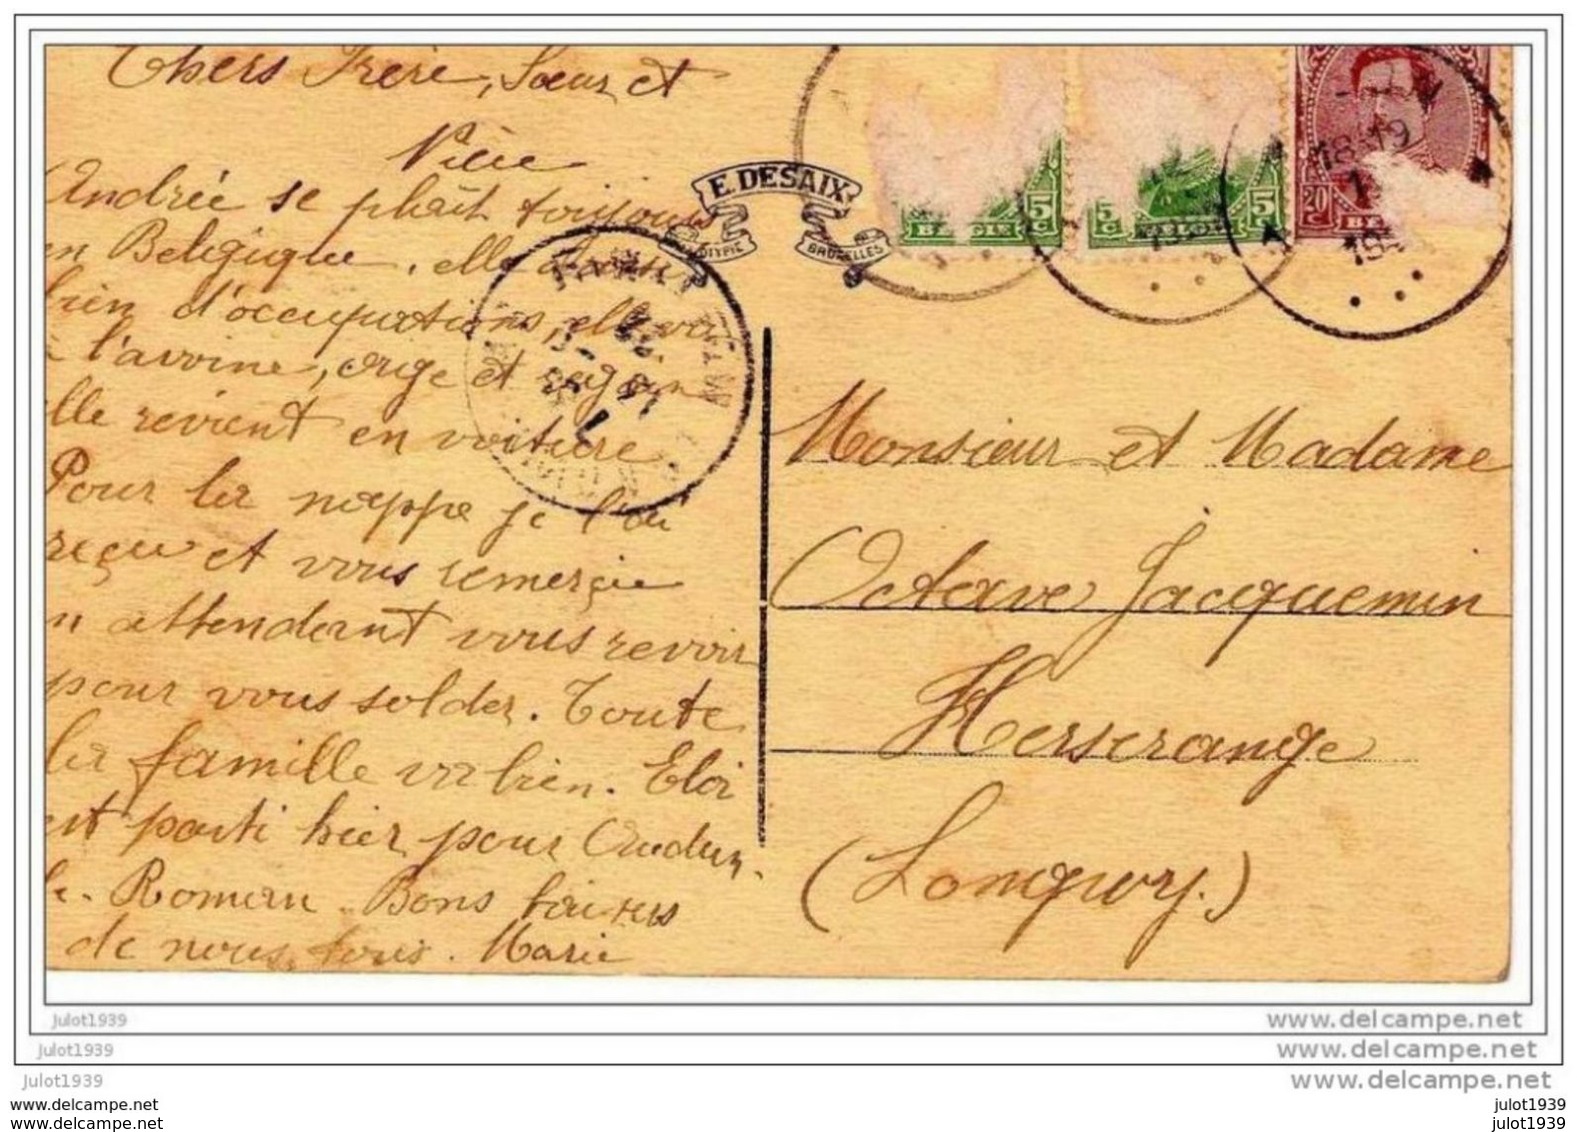 Chers Frère, Sœur et
Nièce
Andrée se plaît toujours
en Belgique, elle
bien d'occupations, elle va
à l'avoine, orge et
elle revient en voiture.
Pour la nappe je l'ai
reçu et vous remercie
n attendant vous revoir
pour vous solder. Toute
la famille va bien. Eloi
est parti hier pour Audun-
le-Roman. Bons baisers
de nous tous. Marie
E. DESAIX
BRUXELLES
5c BELGIE 5c
5c BELGIE 5c
20c BELG
18-19
Monsieur et Madame
Octave Jacquemin
Herserange
(Longwy.)
julot1939
julot1939
julot1939
julot1939
julot1939
www.delcampe.net
www.delcampe.net
www.delcampe.net
julot1939
julot1939